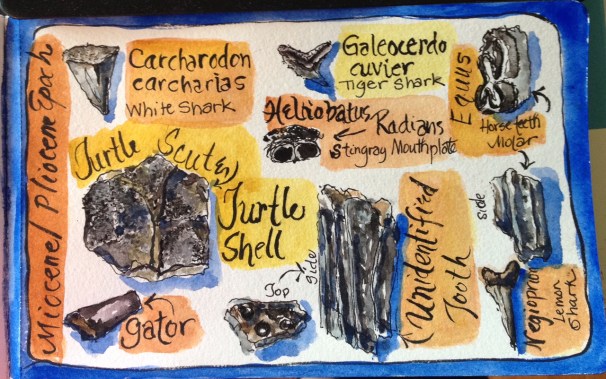 Miocene/ Pliocene Epoch
Carcharodon
carcharias
White Shark
Galeocerdo
cuvier
Tiger Shark
Equus
Horse teeth
Molar
Heliobatus
Radians
Stingray Mouthplate
Turtle Scute
Turtle
Shell
side
Unidentified
Tooth
side
gator
Top
Lemon
Shark